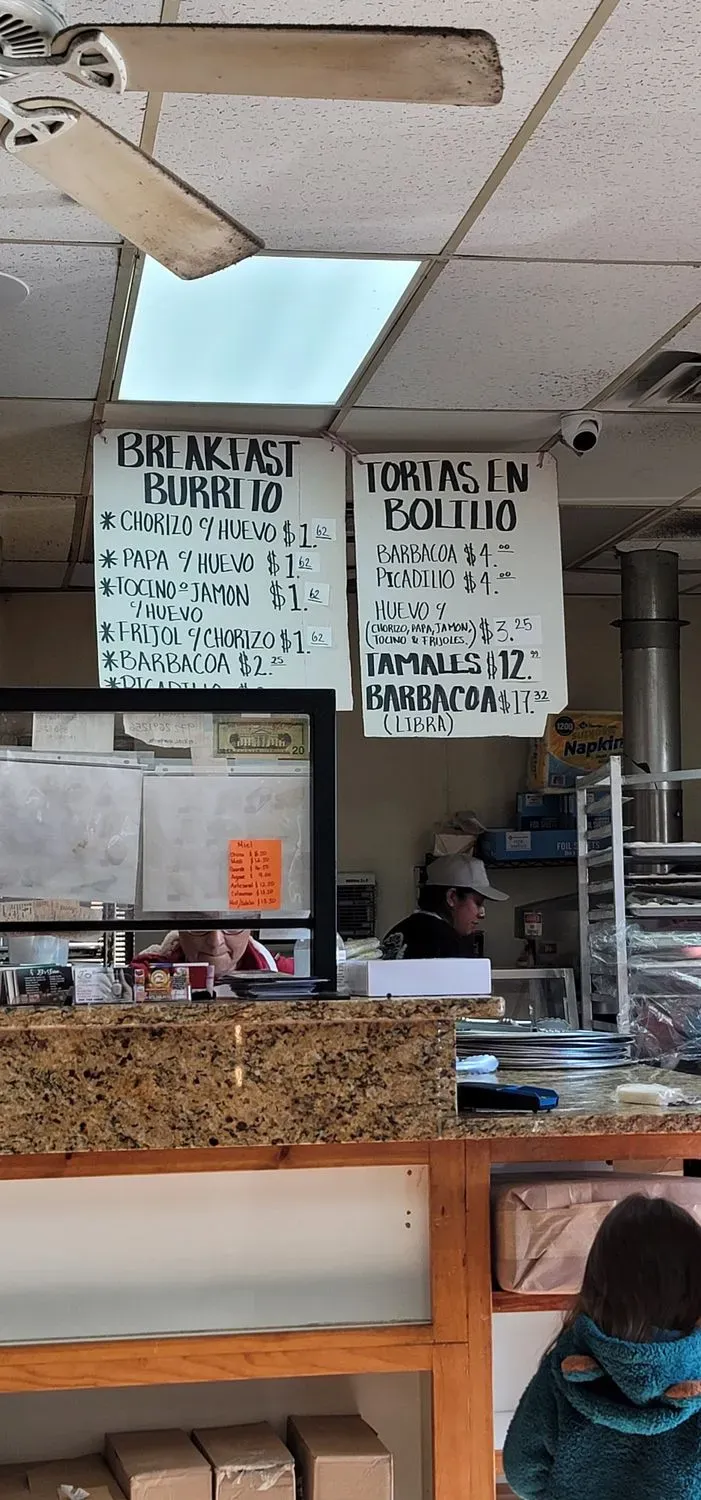 BREAKFAST
BURRITO
* CHORIZO c/ HUEVO $1.62
* PAPA c/ HUEVO $1.62
* TOCINO o JAMON $1.62
c/ HUEVO
* FRIJOL c/ CHORIZO $1.62
* BARBACOA $2.25
TORTAS EN
BOLILLO
BARBACOA $4.00
PICADILLO $4.00
HUEVO c/
(CHORIZO, PAPA, JAMON, $3.25
TOCINO & FRIJOLES.)
TAMALES $12.99
BARBACOA $17.32
(LIBRA)
1200
Napkin
FOIL SHEETS
20
Miel